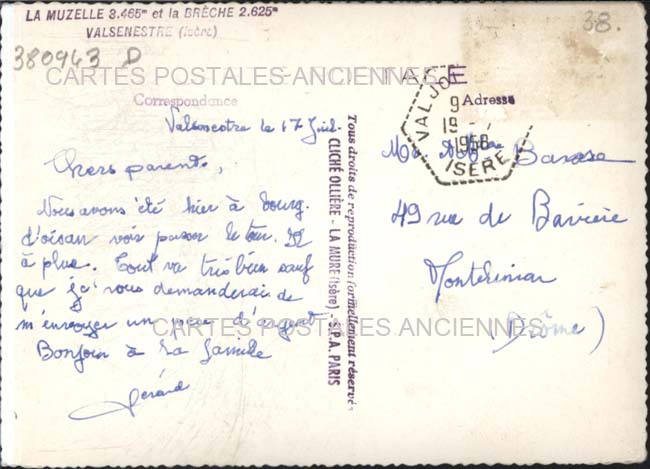 LA MUZELLE 3.465m et la BRÈCHE 2.625m
VALSENESTRE (Isère)
380963 D
38.
CARTES POSTALES ANCIENNES
Correspondance
Adresse
VALJOU
9
19 -
1958
ISERE
Valsenestre le 17 Juil.
Chers parents,
Nous avons été hier à Bourg
d'oisan voir passer le tour. Il
à plue. Tout va très bien sauf
que je vous demanderai de
m'envoyer un peu d'argent
Bonjour à la famille
Gérard
Tous droits de reproduction formellement réservés
CLICHÉ OLLIÈRE - LA MURE (Isère) - S.P.A. PARIS
49 rue de Bavière
Montélimar
(Drôme)
CARTES POSTALES ANCIENNES